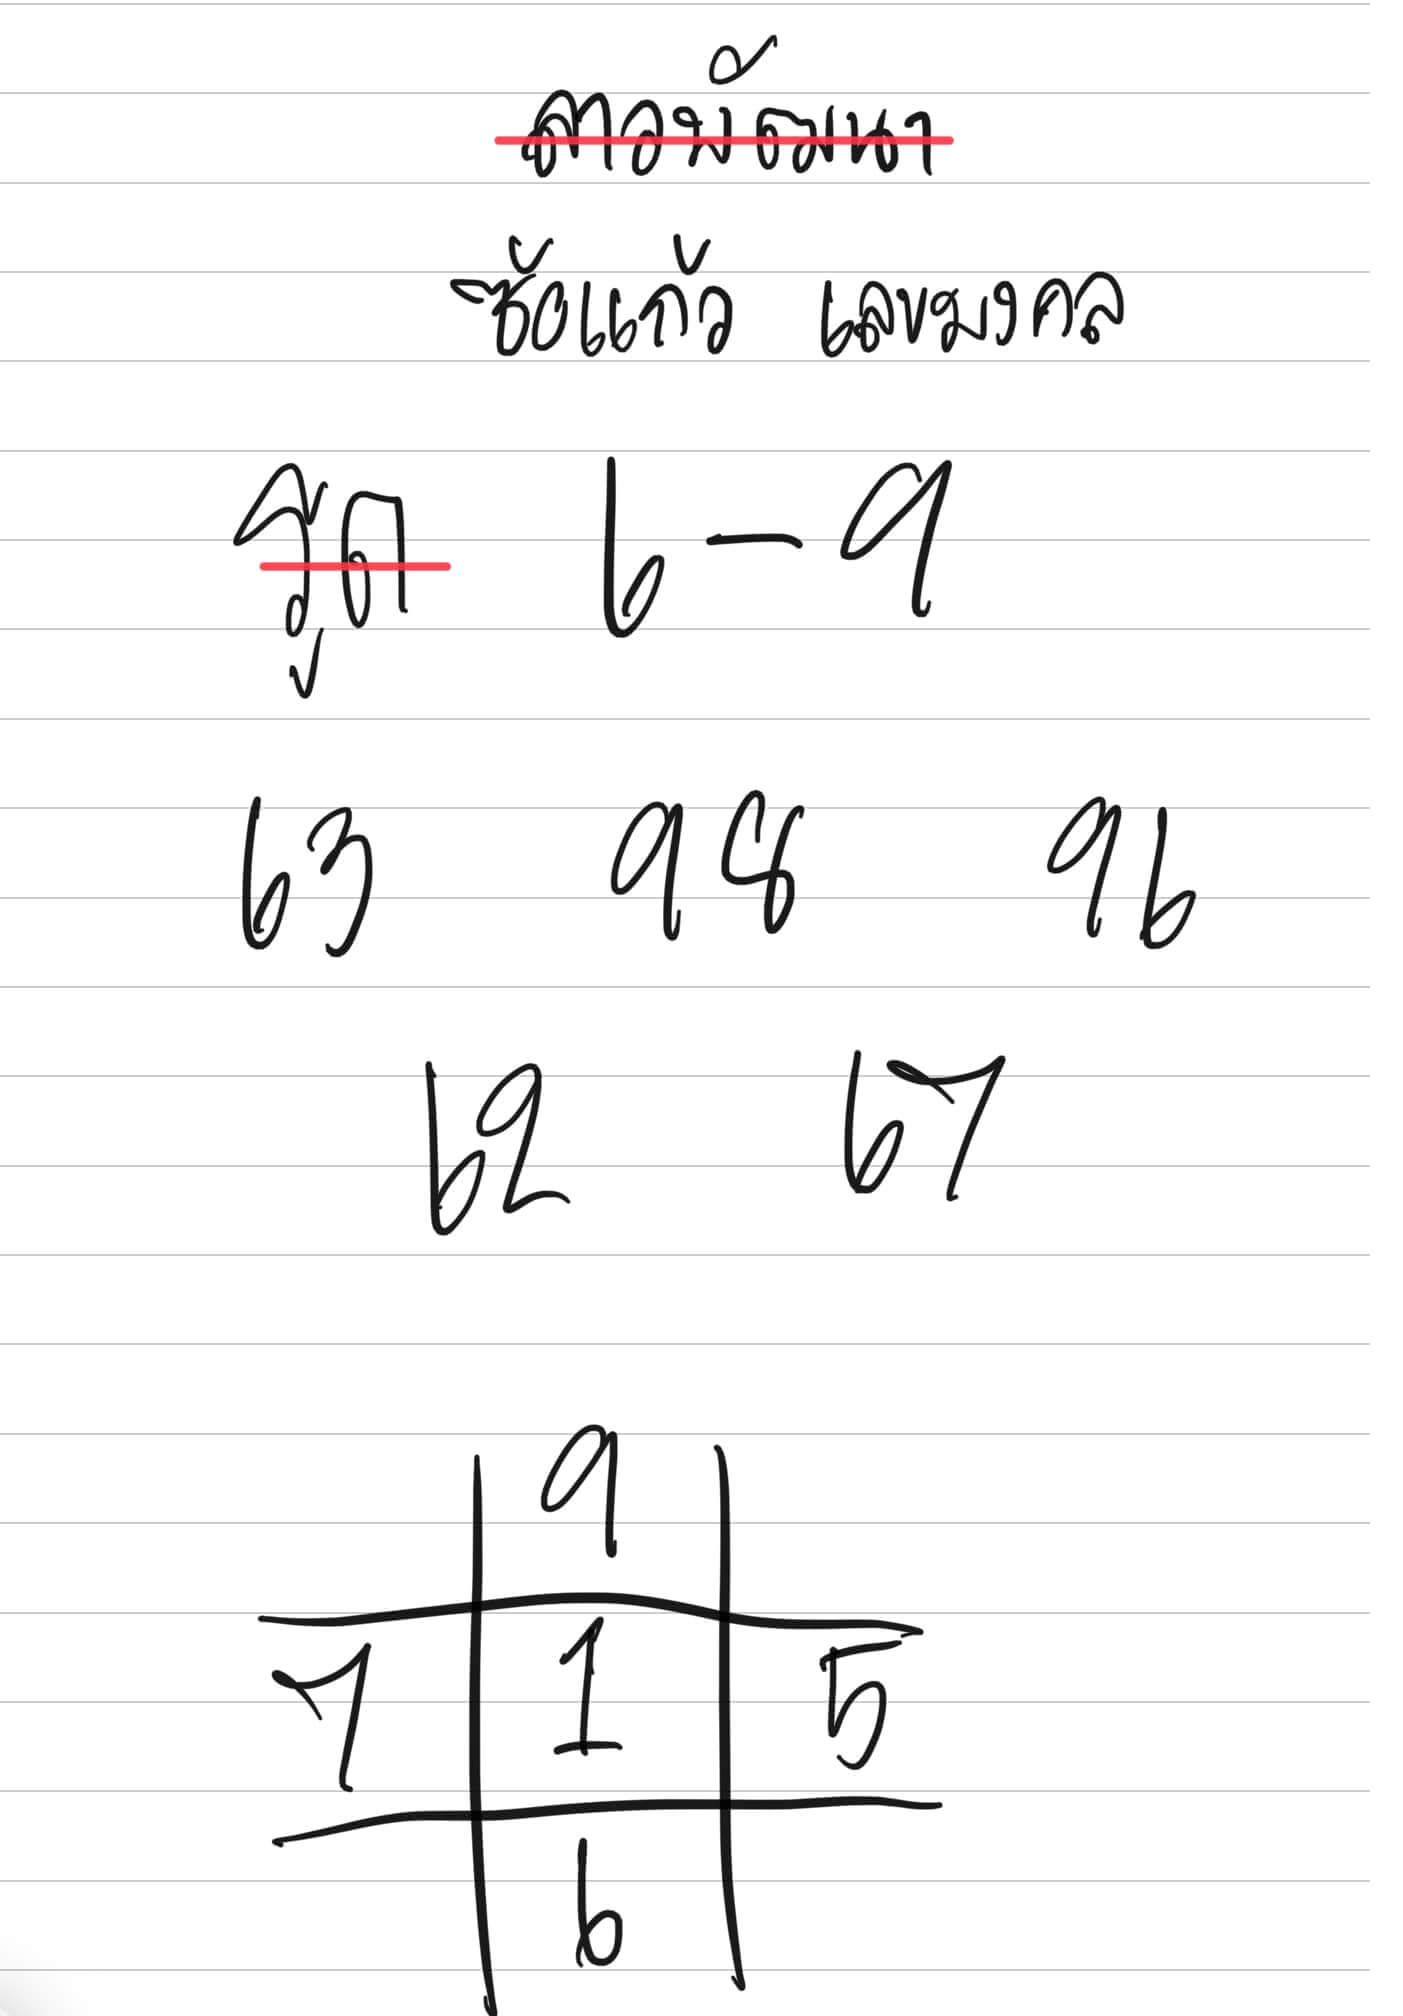 ลาวพัฒนา
ซ้อแก้ว เลขมงคล
รูด 6-9
63 98 96
62 67
9
7 1 5
6